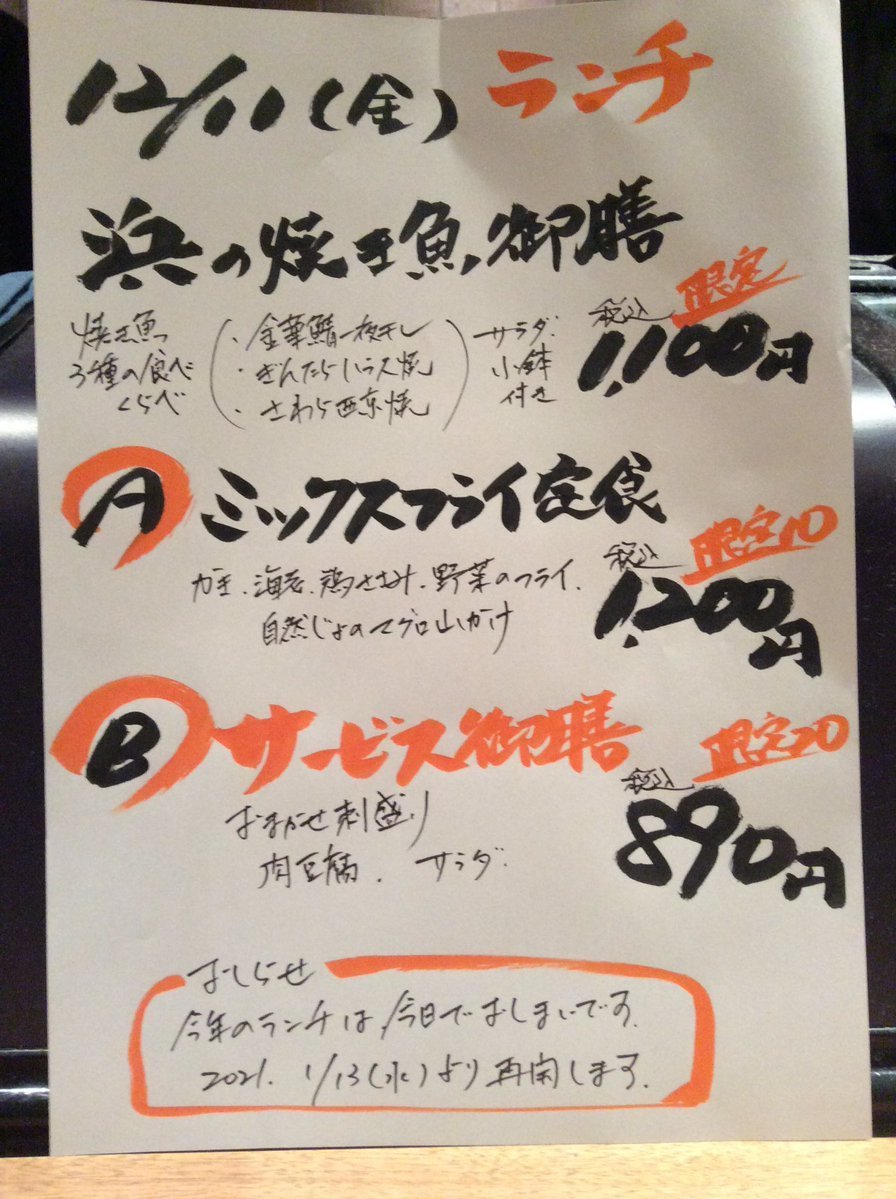 12/11(金) ランチ
浜の焼き魚御膳
限定
税込
1,100円
焼き魚
3種の食べ
くらべ
・金華鯖一夜干し
・ぎんだらハラス焼
・さわら西京焼
サラダ
小鉢
付き
A ミックスフライ定食
限定10
税込
1,200円
かき、海老、鶏ささみ、野菜のフライ、
自然じょのマグロ山かけ
B サービス御膳
限定20
税込
890円
おまかせ刺盛り
肉豆腐、サラダ
おしらせ
今年のランチは、今日でおしまいです。
2021. 1/13(水)より再開します。